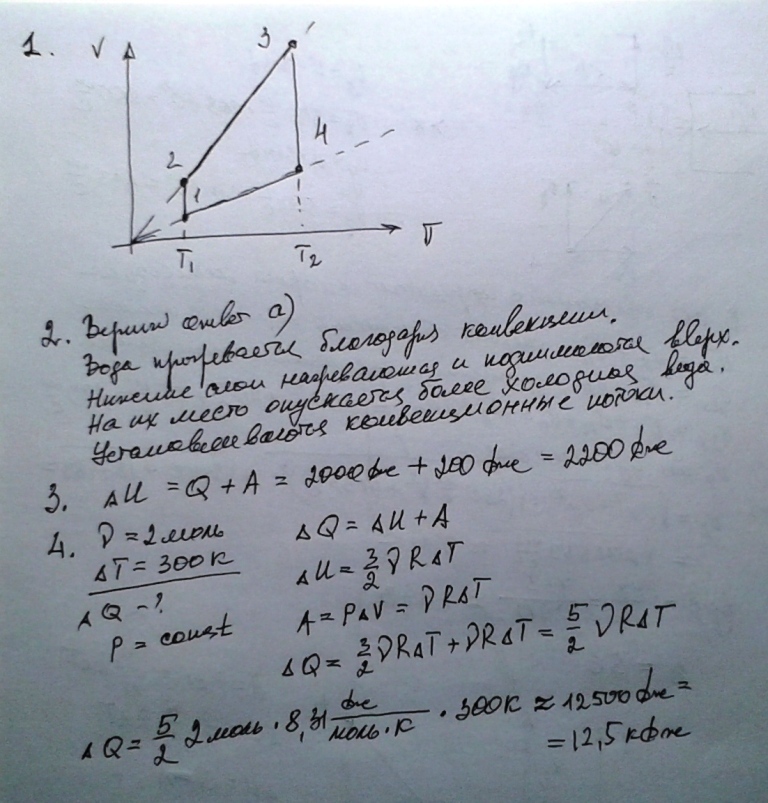 1. V
3
4
2
1
T₁ T₂ T
2. Верный ответ а)
Вода прогревается благодаря конвекции.
Нижние слои нагреваются и поднимаются вверх.
На их место опускается более холодная вода.
Устанавливаются конвекционные потоки.
3. ΔU = Q + A = 2000 Дж + 200 Дж = 2200 Дж
4. ν = 2 моль
ΔT = 300 К
ΔQ - ?
P = const
ΔQ = ΔU + A
ΔU = 3/2 νRΔT
A = PΔV = νRΔT
ΔQ = 3/2 νRΔT + νRΔT = 5/2 νRΔT
ΔQ = 5/2 2 моль · 8,31 Дж/моль·К · 300К ≈ 12500 Дж =
= 12,5 кДж